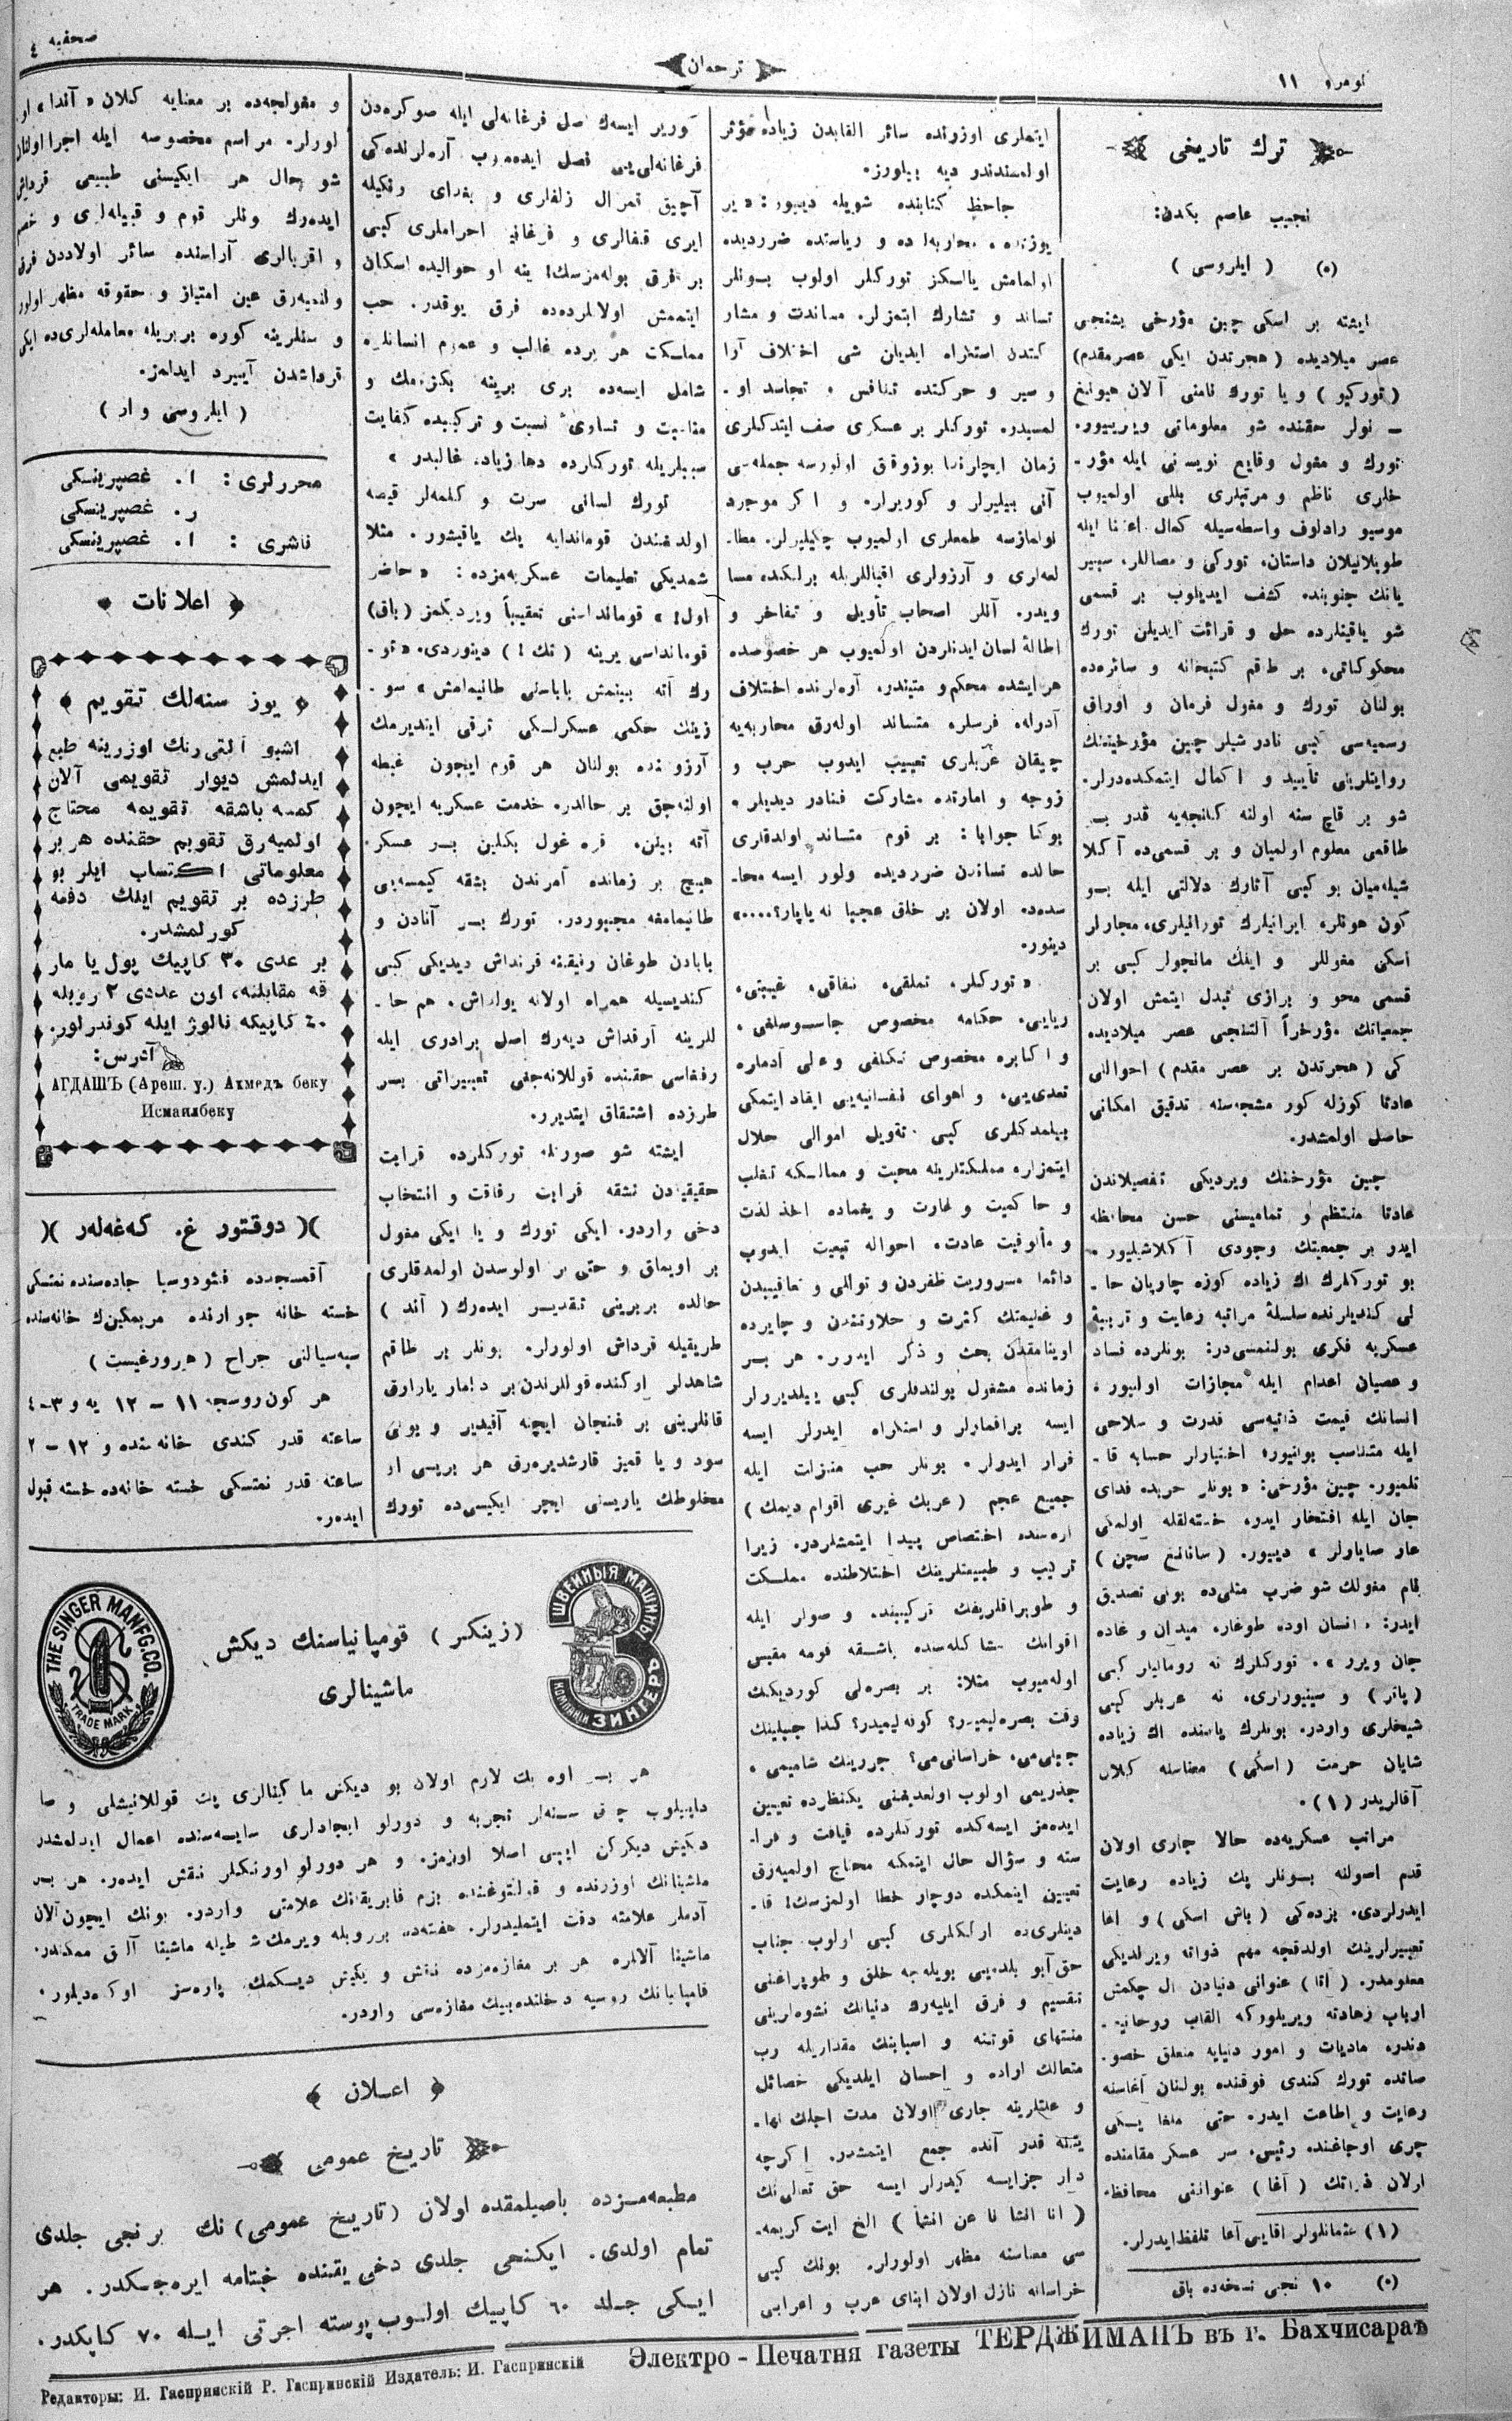 نومرو ١١
ترجمان
صحفيه ٤
ترك تاريخى
نجيب عاصم بكدن:
(٥) ( ايلروسى )
ايشته بر اسكى چين مؤرخى بشنجى
عصر ميلاديده (هجرتدن ايكى عصر مقدم)
(توركيو) ويا تورك نامنى آلان هيونغ
نولر حقنده شو معلوماتى ويرييور.
تورك و مغول وقايع نويسنى ايله مؤر-
خلرى ناظم و مرتبلرى بللى اولميوب
موسيو رادلوف واسطه‌سيله كمال اعتنا ايله
طوپلانيلان داستان، توركى و مصاللر، سيبر
يانك جنوبنده كشف ايديلوب بر قسمى
شو ياقينلرده حل و قرائت ايديلن تورك
محكوكاتى، بر طاقم كتبخانه و سائره‌ده
بولنان تورك و مغول فرمان و اوراق
رسميه‌سى كبى نادر شيلر چين مؤرخينك
روايتلرينى تأييد و اكمال ايتمكده‌درلر.
شو بر قاچ سنه اولنه كلنجه‌يه قدر بر
طاقمى معلوم اولميان و بر قسمى‌ده آكلا
شيله‌ميان بو كبى آثارك دلالتى ايله بو
كون هونلر، ايرانيلرك تورانيلرى، مجارلر
اسكى مغوللر و ايلك مانچولر كبى بر
قسمى محو و برازى تبدل ايتمش اولان
جمعياتك مؤرخراً آلتنجى عصر ميلاديده
كى (هجرتدن بر عصر مقدم) احوالنى
عادتا كوزله كور مشجه‌سنه تدقيق امكانى
حاصل اولمشدر.
چين مؤرخنك ويرديكى تفصيلاتدن
عادتا منتظم و تماميسنى حسن محافظه
ايدر بر جمعيتك وجودى آكلاشيليور.
بو توركلرك اك زياده كوزه چارپان حا-
لى كنديلرنده سلسلۀ مراتبه رعايت و تربيۀ
عسكريه فكرى بولنمسى‌در: بونلرده فساد
و عصيان اعدام ايله مجازات اولنيور.
انسانك قيمت ذاتيه‌سى قدرت و سلاحى
ايله متناسب بولنيور، اختيارلر حسابه قا-
تلميور. چين مؤرخى: «بونلر حربده فداى
جان ايله افتخار ايدر، خسته‌لقله اولمكى
عار صايارلر» ديبور. (سانانغ سچن)
نام مغولك شو ضرب مثلى‌ده بونى تصديق
ايدر: «انسان اوده طوغار، ميدان وغاده
جان ويرر». توركلرك نه روماليلر كبى
(پاتر) و سينيورلرى، نه عربلر كبى
شيخلرى واردر. بونلرك ياننده اك زياده
شايان حرمت (اسكى) معناسنه كلان
آقالريدر (١).
مراتب عسكريه‌ده حالا جارى اولان
قدم اصولنه بونلر پك زياده رعايت
ايدرلردى. بزده‌كى (باش اسكى) و اغا
تعبيرلرينك اولدقجه مهم ذواته ويرلديكى
معلومدر. (آتا) عنوانى دنيادن ال چكمش
ارباب زهادته ويريلوركه القاب روحانيه-
دندر، ماديات و امور دنيايه متعلق خصو-
صاتده تورك كندى فوقنده بولنان آغاسنه
رعايت و اطاعت ايدر. حتى ملغا يكى
چرى اوجاغنده رئيس، سر عسكر مقامنده
اولان ذاتك (آغا) عنواننى محافظه
(١) عثمانلولر اقايى آغا تلفظ ايدرلر.
(٥) ١٠ نجى نسخه‌ده باق
ايتملرى اوزرنده سائر القابدن زياده مؤثر
اولمسندندر ديه بيلورز.
جاحظ كتابنده شويله ديبور: «ير
يوزنده، محاربه‌ده و رياستده ضررديده
اولمامش يالكز توركلر اولوب بونلر
تساند و تشارك ايتمزلر. مساندت و مشار
كتدن استكراه ايديان شى اختلاف آرا
و سير و حركتده تنافس، تحاسد او-
لمسيدر. توركلر بر عسكرى صف ايتدكلرى
زمان ايچلرنده بوزوقلق اولورسه جمله‌سى
آنى بيليرلر و كوريرلر، و اكر موجود
اولمازسه طمعلرى اولميوب چكيليرلر. مطا-
لعه‌لرى و آرزولرى اقباللريله برلكده مسا
ويدر. آنلر اصحاب تأويل و تفاخر و
اطالۀ لسان ايدنلردن اولميوب هر خصوصده
هر ايشده محكم و متيندر، آره‌لرنده اختلاف
آدوله، فرسلر، متساند اوله‌رق محاربه‌يه
چيقان عربلرى تعييب ايدوب حرب و
زوجه و امارتده مشاركت فنادر ديديلر.
بوكا جوابا: بر قوم متساند اولدقلرى
حالده تساندن ضررديده اولور ايسه محا-
سدده، اولان بر خلق عجبا نه ياپار؟....»
دينور.
«توركلر، تملقى، نفاقى، غيبتى،
ريايى، حكامه مخصوص جاسوسلغى،
و اكابره مخصوص تكلفى و على آدمله
تعدى‌يى، و اهواى نفسانيه‌يى ايفاد ايتمكى
بيلمدكلرى كبى، تأويل اموالى حلال
ايتمزلر، مملكتلرينه محبت و ممالكه تغلب
و حاكميت و غارت و يغماده اخذ لذت
و مألوفيت عادت، احواله تبعيت ايدوب
دائما مسروريت ظفردن و توالى و تعاقبيندن
و غنيمتك كثرت و حلاوتندن و چايرده
اوينامقدن بحث و ذكر ايدرر. هر بر
زمانده مشغول بولندقلرى كبى بيلديررلر
ايسه براقمازلر و استكراه ايدرلر ايسه
فرار ايدرلر. بونلر حب منزلت ايله
جميع عجم (عربك غيرى اقوام ديمك)
اره‌سنده اختصاص پيدا ايتمشلردر. زيرا
تركيب و طبيعتلرينك اختلاطنده مملكت
و طوپراقلرينك تركيبنده، و صولر ايله
اقوانك مشاكله‌سنده باشقه قومه مقيس
اوله‌ميوب مثلا: بر بصره‌لى كورديكك
وقت بصره‌ليميدر؟ كوفه‌ليميدر؟ كذا جبلينك
جبلى‌مى، خراسانى‌مى؟ جزرينك شاميمى،
جذريمى اولوب اولمديغنى يكنظرده تعيين
ايده‌مز ايسه‌كده توركلرده قيافت و فرا-
سته و سؤال حال ايتمكه محتاج اولميه‌رق
تعيين ايتمكده دوچار خطا اولمزسك! قا-
دينلرى‌ده اركلكلرى كبى اولوب جناب
حق آبو بلده‌يى بويله‌جه خلق و طوپراغنى
تقسيم و فرق ايليه‌رك دنيانك نشوه‌لرينى
منتهاى قوتنه و اسبابنك مقداريله رب
متعالك اراده و احسان ايلديكى خصائل
و علتلرينه جارى اولان مدت اجلك نها-
يتنه قدر آنده جمع ايتمشدر. اكرچه
دار جزايسه كيدرلر ايسه حق تعالى‌نك
( انا انشا نا هن انشأ ) الخ ايت كريمه-
سى معناسنه مظهر اولورلر. بونك كبى
خراسانه نازل اولان ابناى عرب و اعرابى
كورير ايسه‌ك اصل فرغانه‌لى ايله صوكره‌دن
فرغانه‌لى‌يى فصل ايده‌ميوب آره‌لرنده‌كى
آچيق قمرال زلفلرى و بغداى رنكيله
ايرى قفالرى و فرغانى احراملرى كبى
بر فرق بوله‌مزسك! ينه او حواليده اسكان
ايتممش اولانلرده‌ده فرق يوقدر. حب
مملكت هر يرده غالب و عموم انسانلره
شامل ايسه‌ده برى برينه بكزه‌مك و
مناسبت و تساوىٔ نسبت و تركيبده كفايت
سببلريله توركلرده دها زياده غالبدر»
تورك لسانى سرت و كلمه‌لر قيصه
اولدغندن قوماندايه پك ياقيشور. مثلا
شمديكى تعليمات عسكريه‌مزده: «حاضر
اول!» قومانداسنى تعقيباً ويرديكمز (باق)
قومانداسى يرينه (تك!) دينوردى. «تو-
رك آته بينمش باباسنى طانيمامش» سو-
زينك حكمى عسكرلكى ترقى ايتديرمك
آرزوسنده بولنان هر قوم ايچون غبطه
اولنه‌جق بر حالدر. خدمت عسكريه ايچون
آته بينن، قره‌غول بكلين بر عسكر
هيچ بر زمانده آمرندن بشقه كيمسه‌يى
طانيمامغه مجبوردر. تورك بر آنادن و
بابادن طوغان رفيقنه قرنداش ديديكى كبى
كنديسيله همراه اولانه يولداش، هم حا-
للرينه آرقداش ديه‌رك اصل برادرى ايله
رفقاسى حقنده قوللانه‌جغى تعبيراتى بر
طرزده اشتقاق ايتديرر.
ايشته شو صورتله توركلرده قرابت
حقيقيه‌دن بشقه قرابت رفاقت و انتخاب
دخى واردر. ايكى تورك و يا ايكى مغول
بر اويماق و حتى بر اولوسدن اولمدقلرى
حالده بربرينى تقدير ايده‌رك (آند)
طريقيله قرداش اولورلر. بونلر بر طاقم
شاهدلر اوكنده قوللرندن بر دامار ياراراق
قانلرينى بر فنجان ايچنه آقيدير و بونى
سود و يا قميز قارشديره‌رق هر بريسى او
مخلوطك ياريسنى ايچر ايكيسى‌ده تورك
و مغولجه‌ده بر معنايه كلان «آندا» او
لورلر. مراسم مخصوصه ايله اجرا اولنان
شو حال هر ايكيسنى طبيعى قرداش
ايده‌رك ونلر قوم و قبيله‌لرى و خصم
و اقربالرى آراسنده سائر اولاددن فرق
ولنميه‌رق عين امتياز و حقوقه مظهر اولور
و سنلرينه كوره بربريله معامله‌لرى‌ده ايكى
قرداشدن آييرد ايدلمز.
( ايلروسى وار )
محررلرى: ا. غصپرينسكى
ر. غصپرينسكى
ناشرى: ا. غصپرينسكى
اعلانات
يوز سنه‌لك تقويم
اشبو آلتى رنك اوزرينه طبع
ايدلمش ديوار تقويمى آلان
كمسه باشقه تقويمه محتاج
اولميه‌رق تقويم حقنده هر بر
معلوماتى اكتساب ايلر بو
طرزده بر تقويم ايلك دفعه
كورلمشدر.
بر عددى ٣٠ كاپيك پول يا مار
قه مقابلنه، اون عددى ٢ روبله
٤٠ كاپيكه نالوژ ايله كوندرلور.
آدرس:
АГДАШЪ (Ареш. у.) Ахмедъ беку
Исмаилбеку
)( دوقتور غ. كه‌غه‌له‌ر )(
آقمسجدده فئودوسيا جاده‌سنده نمتسكى
خسته خانه جوارنده مريمكين‌ك خانه‌سنده
سپه‌سيالنى جراح (هيرورغيست)
هر كون روسجه ١١ – ١٢ يه و ٣–٤
ساعته قدر كندى خانه‌سنده و ١٢ – ٢
ساعته قدر نمتسكى خسته خانه‌ده خسته قبول
ايدر.
THE SINGER MANFG. CO.
TRADE MARK
(زينكر) قومپانياسنك ديكش
ماشينالرى
ШВЕЙНЫЯ МАШИНЫ
КОМПАНІИ ЗИНГЕРЪ
هر بر اوه پك لازم اولان بو ديكش ماكينالرى پك قوللانيشلى و صا
داييلوب چوق سنه‌لر تجربه و دورلو ايجادلرى سايه‌سنده اعمال ايدلمشدر
ديكش ديكركن ايپى اصلا اوزمز. و هر دورلو اورنكلر نقش ايدر. هر بر
ماشينانك اوزرنده و قولتوغنده بزم فابريقانك علامتى واردر. بونك ايچون آلان
آدملر علامته دقت ايتمليدرلر. هفته‌ده بر روبله ويرمك شرطيله ماشينا آلمق ممكندر.
ماشينا آلانلره هر بر مغازه‌مزده نقش و ديكيش ديكمك پاره‌سز اوكره‌ديلور.
قامپانيانك روسيه داخلنده بيك مغازه‌سى واردر.
اعلان
تاريخ عمومى
مطبعه‌مزده باصيلمقده اولان (تاريخ عمومى)نك برنجى جلدى
تمام اولدى. ايكنجى جلدى دخى يقنده ختامه ايره‌جكدر. هر
ايكى جلد ٦٠ كاپيك اولوب پوسته اجرتى ايله ٧٠ كاپكدر.
Электро - Печатня газеты ТЕРДЖИМАНЪ въ г. Бахчисараѣ
Редакторы: И. Гаспринскій Р. Гаспринскій Издатель: И. Гаспринскій